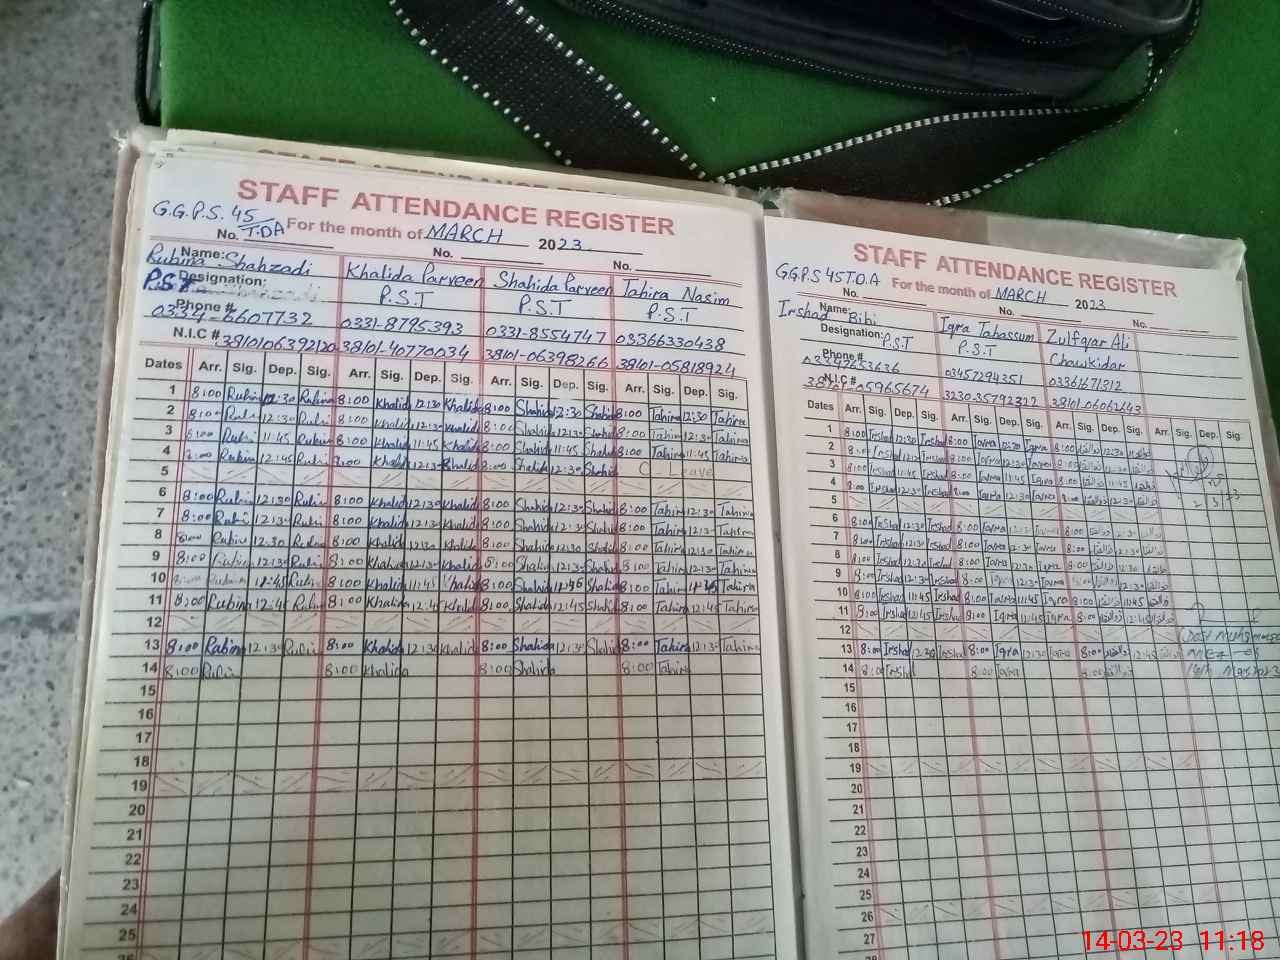 STAFF ATTENDANCE REGISTER
G.G.P.S. 45/T.DA
No. For the month of MARCH 2023
No. No.
Name: Rubina Shahzadi Khalida Parveen Shahida Parveen Tahira Nasim
Designation: P.S.T P.S.T P.S.T P.S.T
Phone # 0331-8795393 0331-8554747 03366330438
N.I.C # 3810106392120 38101-40770034 38101-06398266 38101-05818924
Dates Arr. Sig. Dep. Sig. Arr. Sig. Dep. Sig. Arr. Sig. Dep. Sig. Arr. Sig. Dep. Sig.
1 8:00 Rubina 12:30 Rubina 8:00 Khalida 12:30 Khalida 8:00 Shahida 12:30 Shahida 8:00 Tahira 12:30 Tahira
2 8:00 12:30 8:00 Khalida 12:30 Khalida 8:00 Shahida 12:30 Shahida 8:00 Tahira 12:30 Tahira
3 8:00 11:45 8:00 Khalida 11:45 Khalida 8:00 Shahida 11:45 Shahida 8:00 Tahira 11:45 Tahira
4 8:00 Rubina 12:45 8:00 Khalida 12:30 Khalida 8:00 Shahida 12:30 Shahida C. Leave
5
6 8:00 12:30 8:00 Khalida 12:30 Khalida 8:00 Shahida 12:30 Shahida 8:00 Tahira 12:30 Tahira
7 8:00 12:30 8:00 Khalida 12:30 Khalida 8:00 Shahida 12:30 Shahida 8:00 Tahira 12:30 Tahira
8 8:00 12:30 8:00 Khalida 12:30 Khalida 8:00 Shahida 12:30 Shahida 8:00 Tahira 12:30 Tahira
9 8:00 12:30 8:00 Khalida 12:30 Khalida 8:00 Shahida 12:30 Shahida 8:00 Tahira 12:30 Tahira
10 8:00 Rubina 11:45 8:00 Khalida 11:45 Khalida 8:00 Shahida 11:45 Shahida 8:00 Tahira 11:45 Tahira
11 8:00 Rubina 12:45 8:00 Khalida 12:45 Khalida 8:00 Shahida 12:45 Shahida 8:00 Tahira 12:45 Tahira
12
13 8:00 Rubina 12:30 8:00 Khalida 12:30 Khalida 8:00 Shahida 12:30 Shahida 8:00 Tahira 12:30 Tahira
14 8:00 8:00 Khalida 8:00 Shahida 8:00 Tahira
15
16
17
18
19
20
21
22
23
24
25
STAFF ATTENDANCE REGISTER
G.G.P.S 45 T.D.A
No. For the month of MARCH 2023
No. No.
Name: Irshad Bibi Iqra Tabassum Zulfqar Ali
Designation: P.S.T P.S.T Chawkidar
Phone # 03457294351 03361671312
N.I.C # 38101-06062643
Dates Arr. Sig. Dep. Sig. Arr. Sig. Dep. Sig. Arr. Sig. Dep. Sig. Arr. Sig. Dep. Sig.
1 8:00 Irshad 12:30 Irshad 8:00 Iqra 12:30 Iqra 8:00 12:30
2 8:00 Irshad 12:30 Irshad 8:00 Iqra 12:30 Iqra 8:00 12:30
3 8:00 Irshad 11:45 Irshad 8:00 Iqra 11:45 Iqra 8:00 11:45
4 8:00 Irshad 12:30 Irshad 8:00 Iqra 12:30 Iqra 8:00 12:30
5
6 8:00 Irshad 12:30 Irshad 8:00 Iqra 12:30 8:00
7 8:00 Irshad 12:30 Irshad 8:00 Iqra 12:30 Iqra 8:00 12:30
8 8:00 Irshad 12:30 Irshad 8:00 Iqra 12:30 Iqra 8:00 12:30
9 8:00 Irshad 12:30 Irshad 8:00 Iqra 12:30 Iqra 8:00 12:30
10 8:00 Irshad 11:45 Irshad 8:00 Iqra 11:45 Iqra 8:00 11:45
11 8:00 Irshad 12:45 Irshad 8:00 Iqra 12:45 Iqra 8:00 12:45
12
13 8:00 Irshad 12:30 Irshad 8:00 Iqra 12:30 Iqra 8:00 12:45
14 8:00 Irshad 8:00 Iqra 8:00
15
16
17
18
19
20
21
22
23
24
25
26
27
14-03-23 11:18